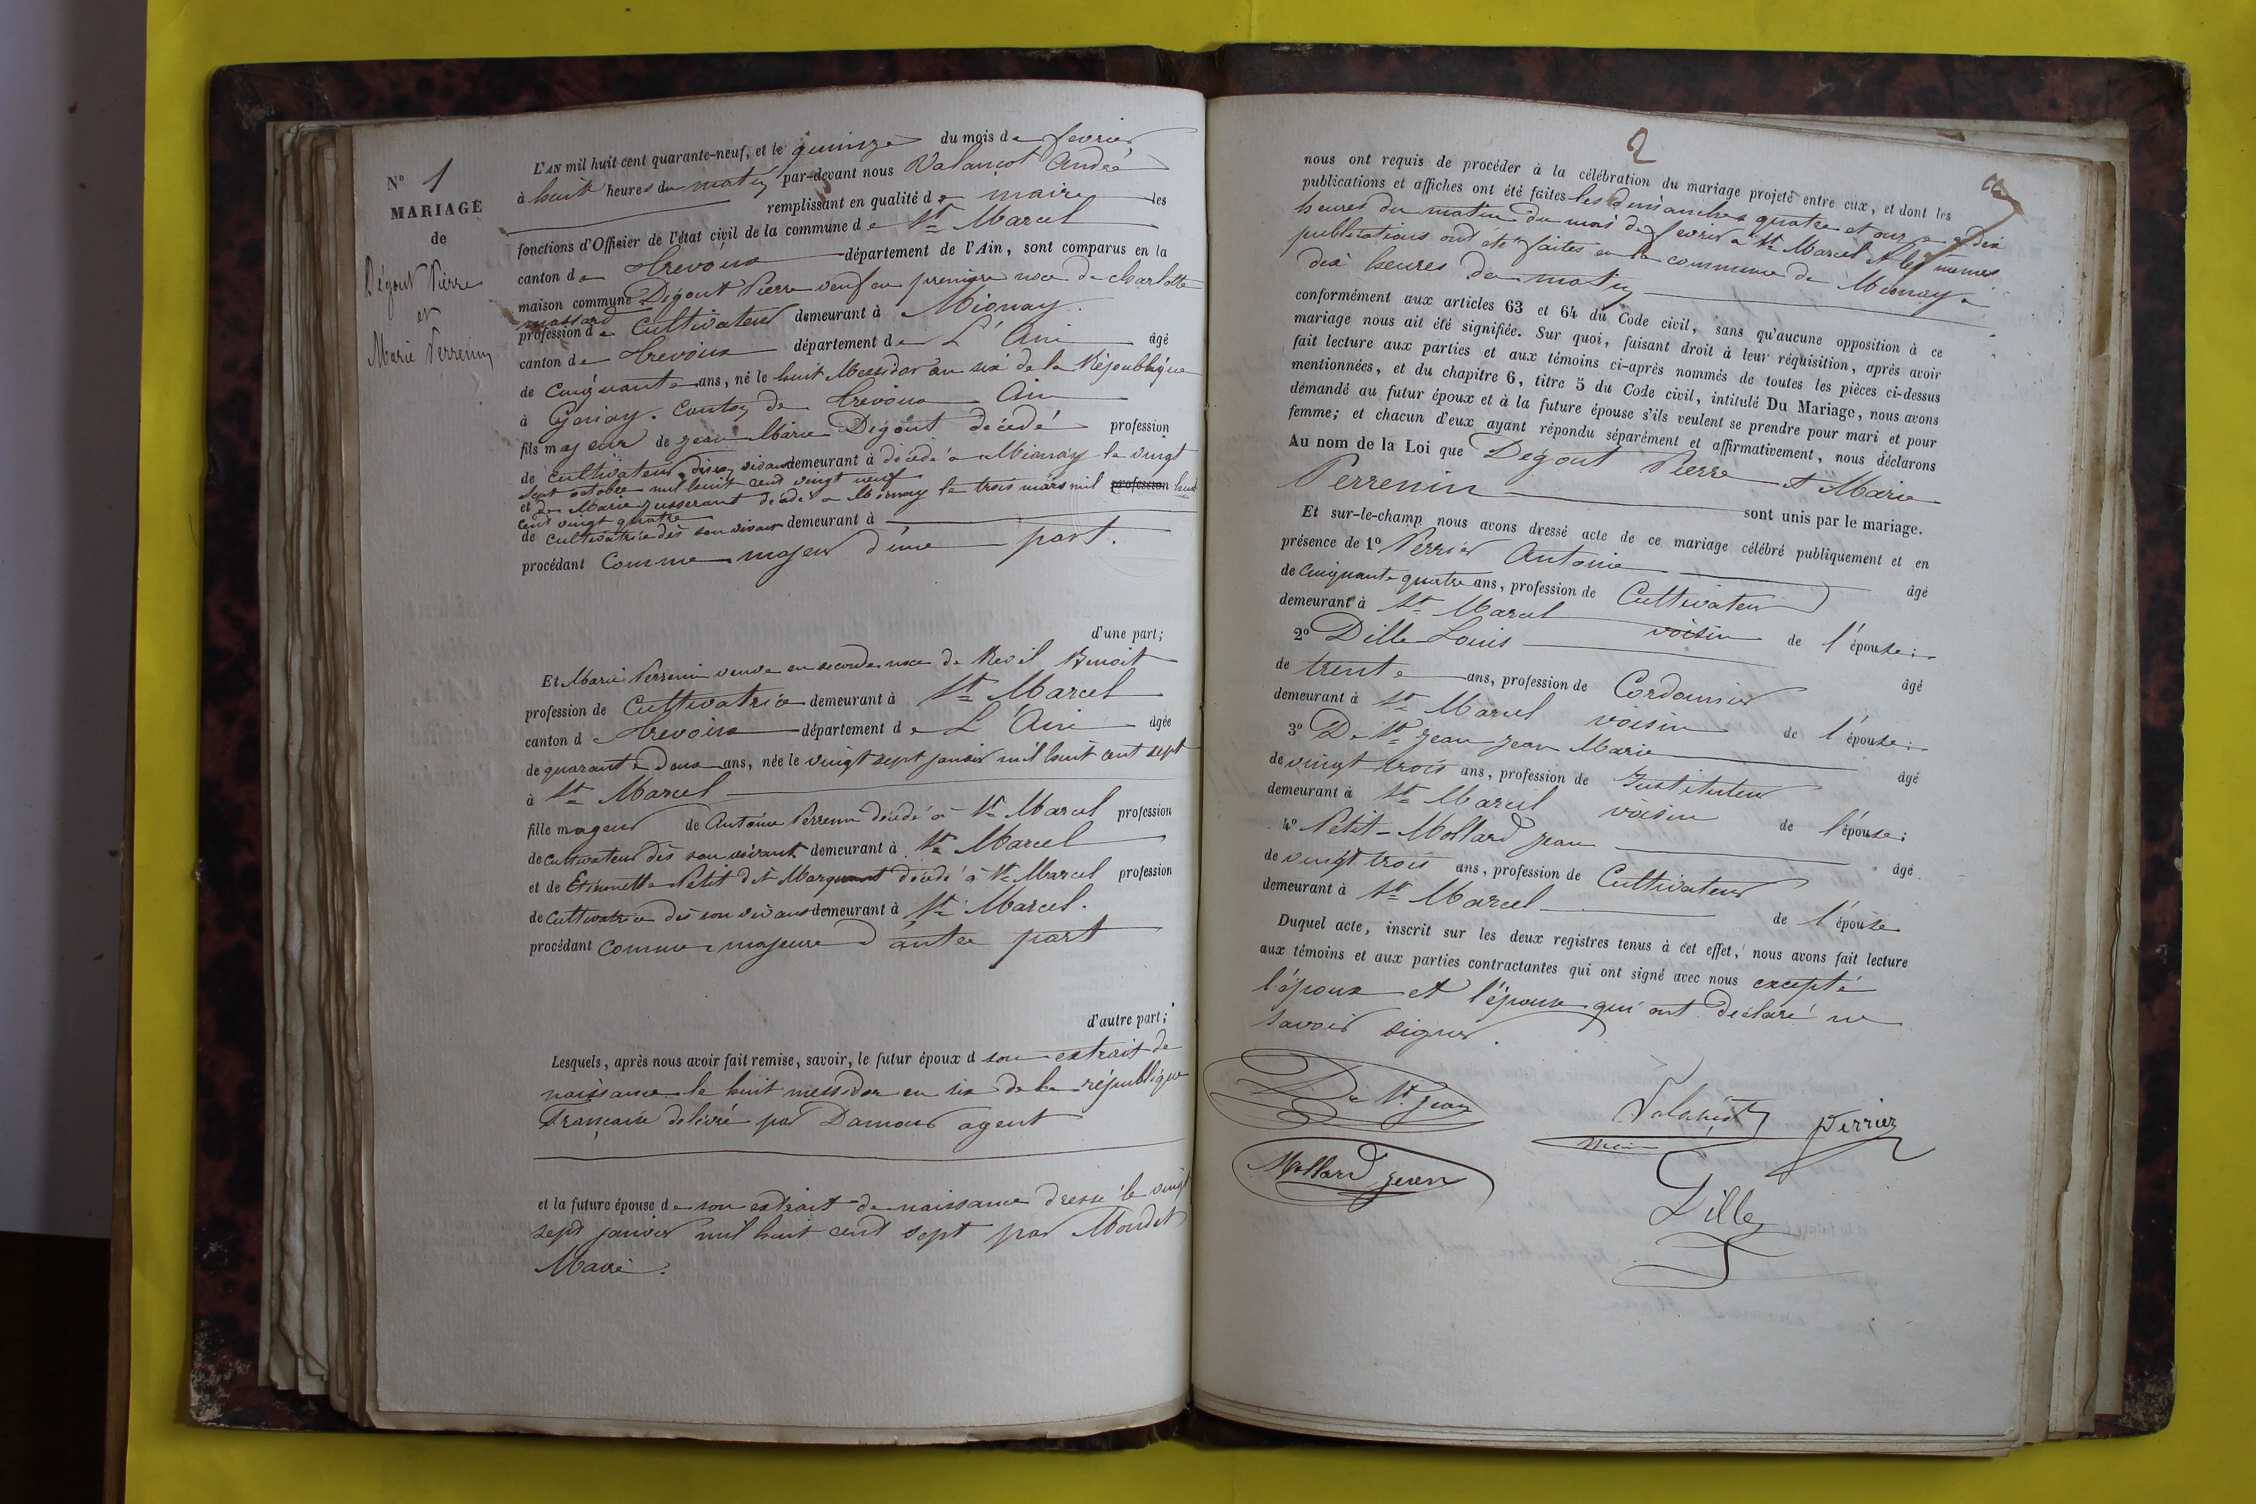 N° 1
MARIAGE
de
Dégout Pierre
et
Marie Perrenin
L'AN mil huit cent quarante-neuf, et le quinze du mois de fevrier
à huit heures du matin par-devant nous Valançot André
remplissant en qualité de maire les
fonctions d'Officier de l'état civil de la commune de St Marcel
canton de Trevoux département de l'Ain, sont comparus en la
maison commune Dégout Pierre veuf en premiere noce de Charlotte
massard
profession de Cultivateur demeurant à Mionay.
canton de Trevoux département de L'Ain âgé
de Cinquante ans, né le huit Messidor an six de la République
à Civrieux canton de Trevoux Ain
fils majeur de Jean Marie Dégout décédé profession
de cultivateur demeurant à décédé à Mionay le vingt
sept octobre mil huit cent vingt neuf
et de Marie décédé a Mionay le trois mars mil profession huit
cent vingt quatre
de cultivatrice dès son vivant demeurant à
procédant Comme majeur d'une part.
d'une part;
Et Marie Perrenin veuve en seconde noce de Revil Benoit
profession de Cultivatrice demeurant à St Marcel
canton d Trevoux département de L'Ain âgée
de quarante deux ans, née le vingt sept janvier mil huit cent sept
à St Marcel
fille mageur de Antoine Perrenin décédé à St Marcel profession
de cultivateur dès son vivant demeurant à St Marcel
et de Etiennette Petit dit Marquant décédé à St Marcel profession
de Cultivatrice dès son vivant demeurant à St Marcel.
procédant comme majeure d'autre part
d'autre part;
Lesquels, après nous avoir fait remise, savoir, le futur époux d son extrait de
naissance le huit messidor an six de la république
Française delivré par Damour agent
et la future épouse de son extrait de naissance dressé le vingt
sept janvier mil huit cent sept par Moudet
Maire.
2
nous ont requis de procéder à la célébration du mariage projeté entre eux, et dont les
publications et affiches ont été faites les dimanches quatre et onze a dix
heures du matin du mois de fevrier a St Marcel et les memes
publications ont été faites en la commune de Mionay a
dix heures du matin
conformément aux articles 63 et 64 du Code civil, sans qu'aucune opposition à ce
mariage nous ait été signifiée. Sur quoi, faisant droit à leur réquisition, après avoir
fait lecture aux parties et aux témoins ci-après nommés de toutes les pièces ci-dessus
mentionnées, et du chapitre 6, titre 5 du Code civil, intitulé Du Mariage, nous avons
demandé au futur époux et à la future épouse s'ils veulent se prendre pour mari et pour
femme; et chacun d'eux ayant répondu séparément et affirmativement, nous déclarons
Au nom de la Loi que Dégout Pierre et Marie
Perrenin sont unis par le mariage.
Et sur-le-champ nous avons dressé acte de ce mariage célébré publiquement et en
présence de 1° Perrier Antoine âgé
de Cinquante quatre ans, profession de Cultivateur
demeurant à St Marcel voisin de l'épouse;
2° Dille Louis âgé
de trente ans, profession de Cordonnier
demeurant à St Marcel voisin de l'épouse;
3° De St Jean Jean Marie âgé
de vingt trois ans, profession de Instituteur
demeurant à St Marcel voisin de l'épouse;
4° Petit-Mollard Jean âgé
de vingt trois ans, profession de Cultivateur
demeurant à St Marcel de l'épouse
Duquel acte, inscrit sur les deux registres tenus à cet effet, nous avons fait lecture
aux témoins et aux parties contractantes qui ont signé avec nous excepté
l'époux et l'épouse qui ont déclaré ne
savoir signer.
De St Jean
Valançot Perrier
Mollard Jean
Dille